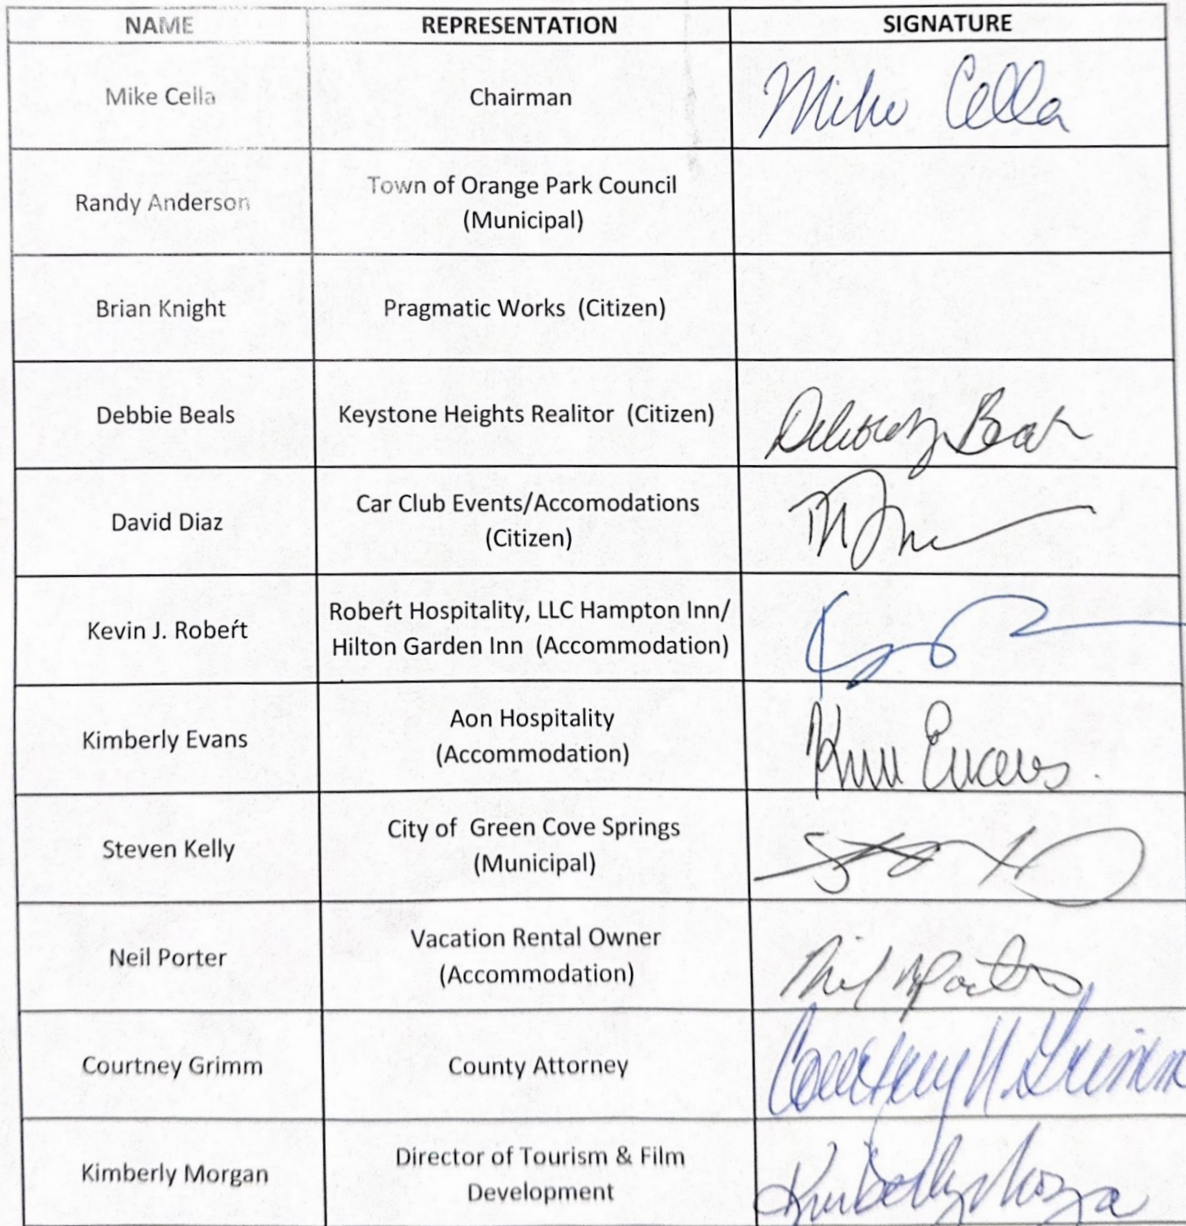 NAME REPRESENTATION SIGNATURE
Mike Cella Chairman Mike Cella
Randy Anderson Town of Orange Park Council
(Municipal)
Brian Knight Pragmatic Works (Citizen)
Debbie Beals Keystone Heights Realitor (Citizen)
David Diaz Car Club Events/Accomodations
(Citizen)
Kevin J. Robeŕt Robeŕt Hospitality, LLC Hampton Inn/
Hilton Garden Inn (Accommodation)
Kimberly Evans Aon Hospitality
(Accommodation) Kim Evans
Steven Kelly City of Green Cove Springs
(Municipal)
Neil Porter Vacation Rental Owner
(Accommodation)
Courtney Grimm County Attorney Courtney Grimm
Kimberly Morgan Director of Tourism & Film
Development